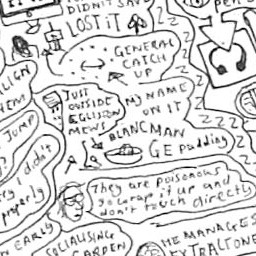 DIDN'T SAVE
LOST IT
PEN
GENERAL
CATCH
UP
ALIGN
ITEM
JUST
OUTSIDE
EGLISON
MEWS
MY NAME
ON IT
BLANCMAN
GE pudding
JUMP
I didn't
properly
They are poisonous
so wrap it up and
don't touch directly
EARLY
SOCIALISING
GARDEN
HE MANAGES